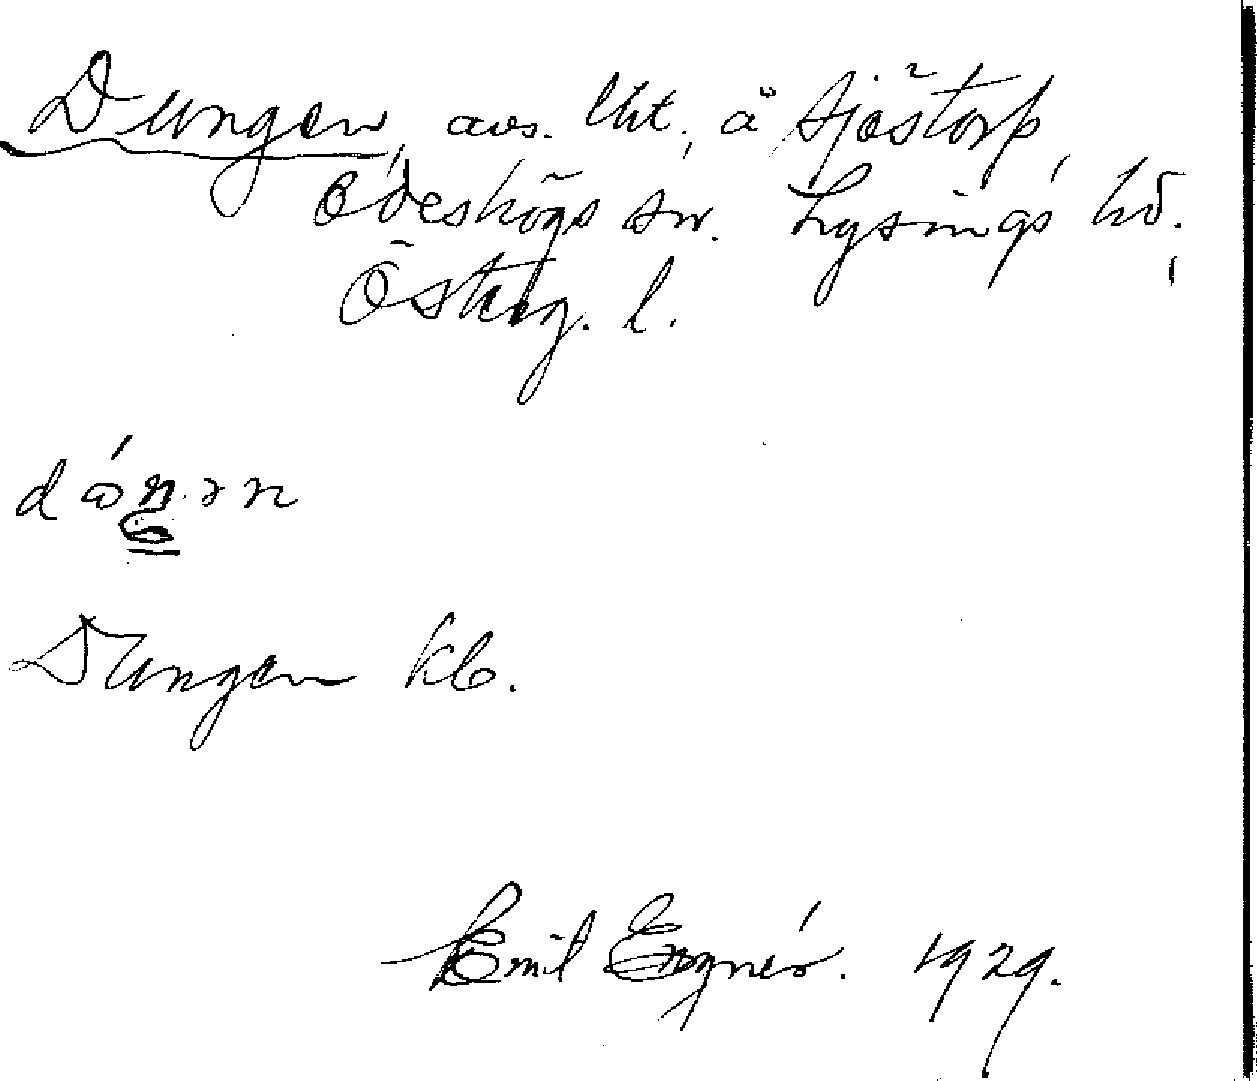 Dungen, avs. lht. å Sjöstorp,
Ödeshögs sn. Lysings hd.
Österg. l.
dóŋən
Dungen kb.
Emil Egnér. 1929.